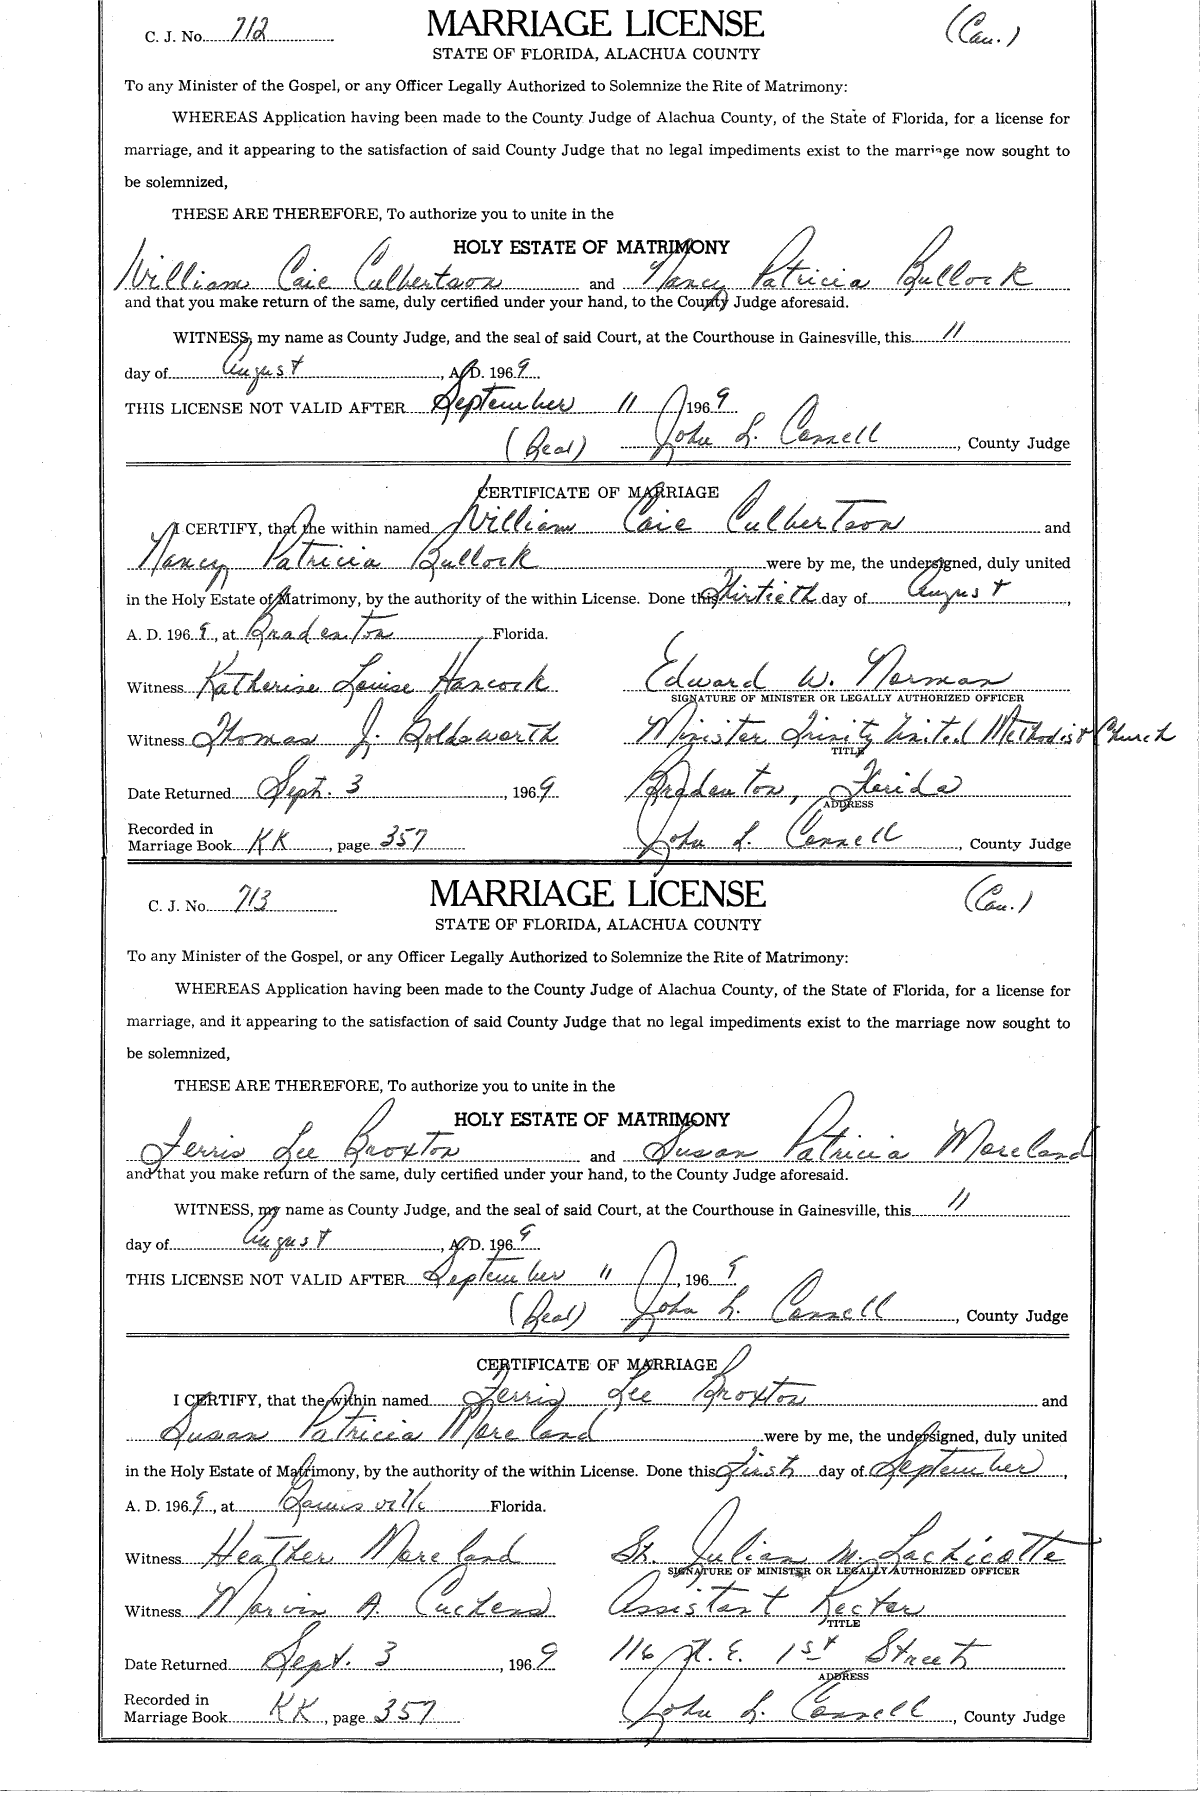 C. J. No. 712 MARRIAGE LICENSE (Cau.)
STATE OF FLORIDA, ALACHUA COUNTY
To any Minister of the Gospel, or any Officer Legally Authorized to Solemnize the Rite of Matrimony:
WHEREAS Application having been made to the County Judge of Alachua County, of the State of Florida, for a license for
marriage, and it appearing to the satisfaction of said County Judge that no legal impediments exist to the marriage now sought to
be solemnized,
THESE ARE THEREFORE, To authorize you to unite in the
HOLY ESTATE OF MATRIMONY
William Caie Culbertson and Nancy Patricia Bullock
and that you make return of the same, duly certified under your hand, to the County Judge aforesaid.
WITNESS, my name as County Judge, and the seal of said Court, at the Courthouse in Gainesville, this 11
day of August, A. D. 1969
THIS LICENSE NOT VALID AFTER September 11 1969
(Seal) John L. Connell, County Judge
CERTIFICATE OF MARRIAGE
I CERTIFY, that the within named William Caie Culbertson and
Nancy Patricia Bullock were by me, the undersigned, duly united
in the Holy Estate of Matrimony, by the authority of the within License. Done this Thirtieth day of August,
A. D. 1969, at Bradenton, Florida.
Witness Katherine Louise Hancock Edward W. Norman
SIGNATURE OF MINISTER OR LEGALLY AUTHORIZED OFFICER
Witness Thomas J. Goldsworth Minister Trinity United Methodist Church
TITLE
Date Returned Sept. 3, 1969 Bradenton, Florida
ADDRESS
Recorded in
Marriage Book KK, page 357 John L. Connell, County Judge
C. J. No. 713 MARRIAGE LICENSE (Cau.)
STATE OF FLORIDA, ALACHUA COUNTY
To any Minister of the Gospel, or any Officer Legally Authorized to Solemnize the Rite of Matrimony:
WHEREAS Application having been made to the County Judge of Alachua County, of the State of Florida, for a license for
marriage, and it appearing to the satisfaction of said County Judge that no legal impediments exist to the marriage now sought to
be solemnized,
THESE ARE THEREFORE, To authorize you to unite in the
HOLY ESTATE OF MATRIMONY
Ferris Lee Broxton and Susan Patricia Moreland
and that you make return of the same, duly certified under your hand, to the County Judge aforesaid.
WITNESS, my name as County Judge, and the seal of said Court, at the Courthouse in Gainesville, this 11
day of August, A. D. 1969
THIS LICENSE NOT VALID AFTER September 11, 1969
(Seal) John L. Connell, County Judge
CERTIFICATE OF MARRIAGE
I CERTIFY, that the within named Ferris Lee Broxton and
Susan Patricia Moreland were by me, the undersigned, duly united
in the Holy Estate of Matrimony, by the authority of the within License. Done this first day of September,
A. D. 1969, at Gainesville Florida.
Witness Heather Moreland St. Julian M. Lachicotte
SIGNATURE OF MINISTER OR LEGALLY AUTHORIZED OFFICER
Witness Marvin A. Assistant Rector
TITLE
Date Returned Sept. 3, 1969 116 N. E. 1st Street
ADDRESS
Recorded in
Marriage Book KK, page 357 John L. Connell, County Judge